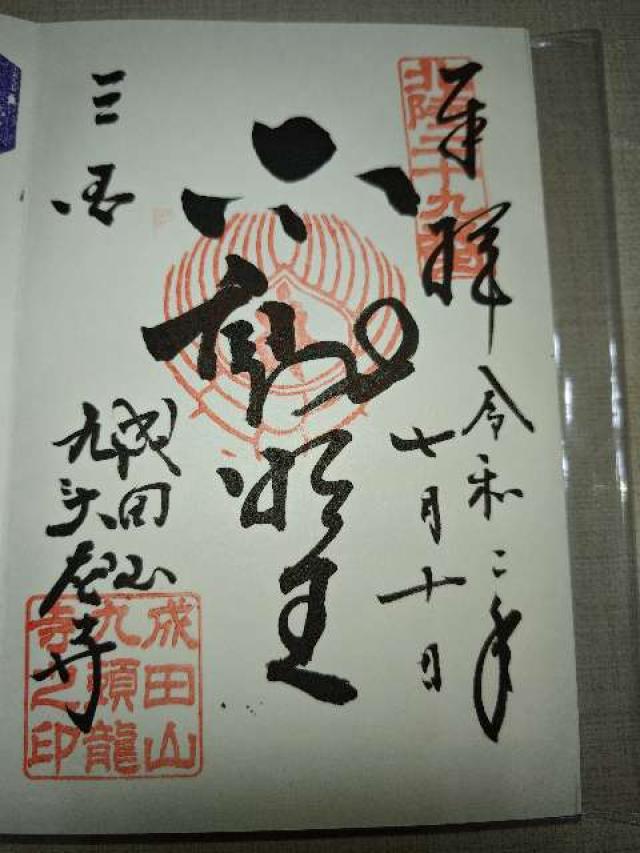 北陸二十九番
奉拝
令和二年
七月十日
不動明王
三国
成田山
九頭龍寺
成田山
九頭龍
寺之印